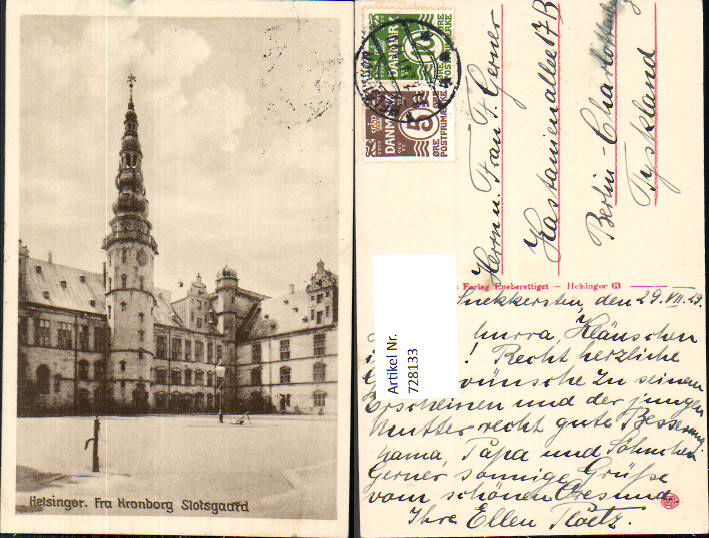 Helsingør. Fra Kronborg Slotsgaard
DANMARK
10
ØRE
POSTFRIMÆRKE
DANMARK
5
ØRE
POSTFRIMÆRKE
Herrn u. Frau F. Gerner
Kastanienallee 17B
Berlin-Charlottenburg
Tyskland
Forlag Eneberettiget — Helsingør 63
Artikel Nr.
728133
Snekkersten, den 29. VII. 29.
hurra, Kläuschen
! Recht herzliche
wünsche zu seinem
Erscheinen und der jungen
Mutter recht gute Besserung.
Mama, Papa und Söhnchen
Gerner sonnige Grüße
vom schönen Øresund.
Ihre Ellen